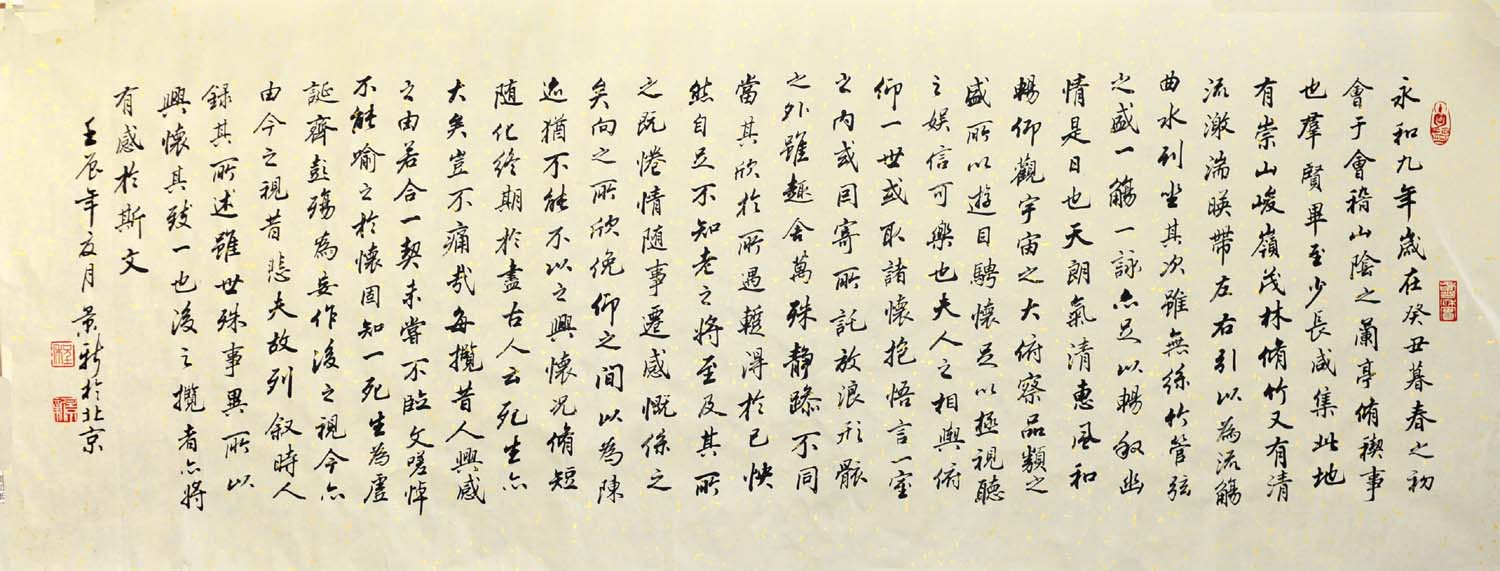 永和九年歲在癸丑暮春之初
會于會稽山陰之蘭亭脩禊事
也羣賢畢至少長咸集此地
有崇山峻嶺茂林脩竹又有清
流激湍暎帶左右引以為流觴
曲水列坐其次雖無絲竹管弦
之盛一觴一詠亦足以暢敘幽
情是日也天朗氣清惠風和
暢仰觀宇宙之大俯察品類之
盛所以遊目騁懷足以極視聽
之娛信可樂也夫人之相與俯
仰一世或取諸懷抱悟言一室
之內或因寄所託放浪形骸
之外雖趣舍萬殊靜躁不同
當其欣於所遇蹔得於己怏
然自足不知老之將至及其所
之既惓情隨事遷感慨係之
矣向之所欣俛仰之間以為陳
迹猶不能不以之興懷況脩短
隨化終期於盡古人云死生亦
大矣豈不痛哉每攬昔人興感
之由若合一契未嘗不臨文嗟悼
不能喻之於懷固知一死生為虛
誕齊彭殤為妄作後之視今亦
由今之視昔悲夫故列敘時人
錄其所述雖世殊事異所以
興懷其致一也後之攬者亦將
有感於斯文
壬辰年夏月景新於北京